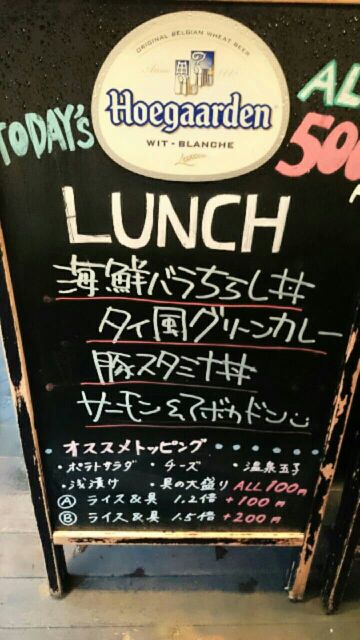 ORIGINAL BELGIAN WHEAT BEER
Hoegaarden
WIT - BLANCHE
TODAY'S
AL
500
LUNCH
海鮮バラちらし丼
タイ風グリーンカレー
豚スタミナ丼
サーモン&アボカドン
オススメトッピング
・ポテトサラダ ・チーズ ・温泉玉子
・浅漬け ・具の大盛り ALL100円
Ⓐ ライス&具 1.2倍 +100円
Ⓑ ライス&具 1.5倍 +200円